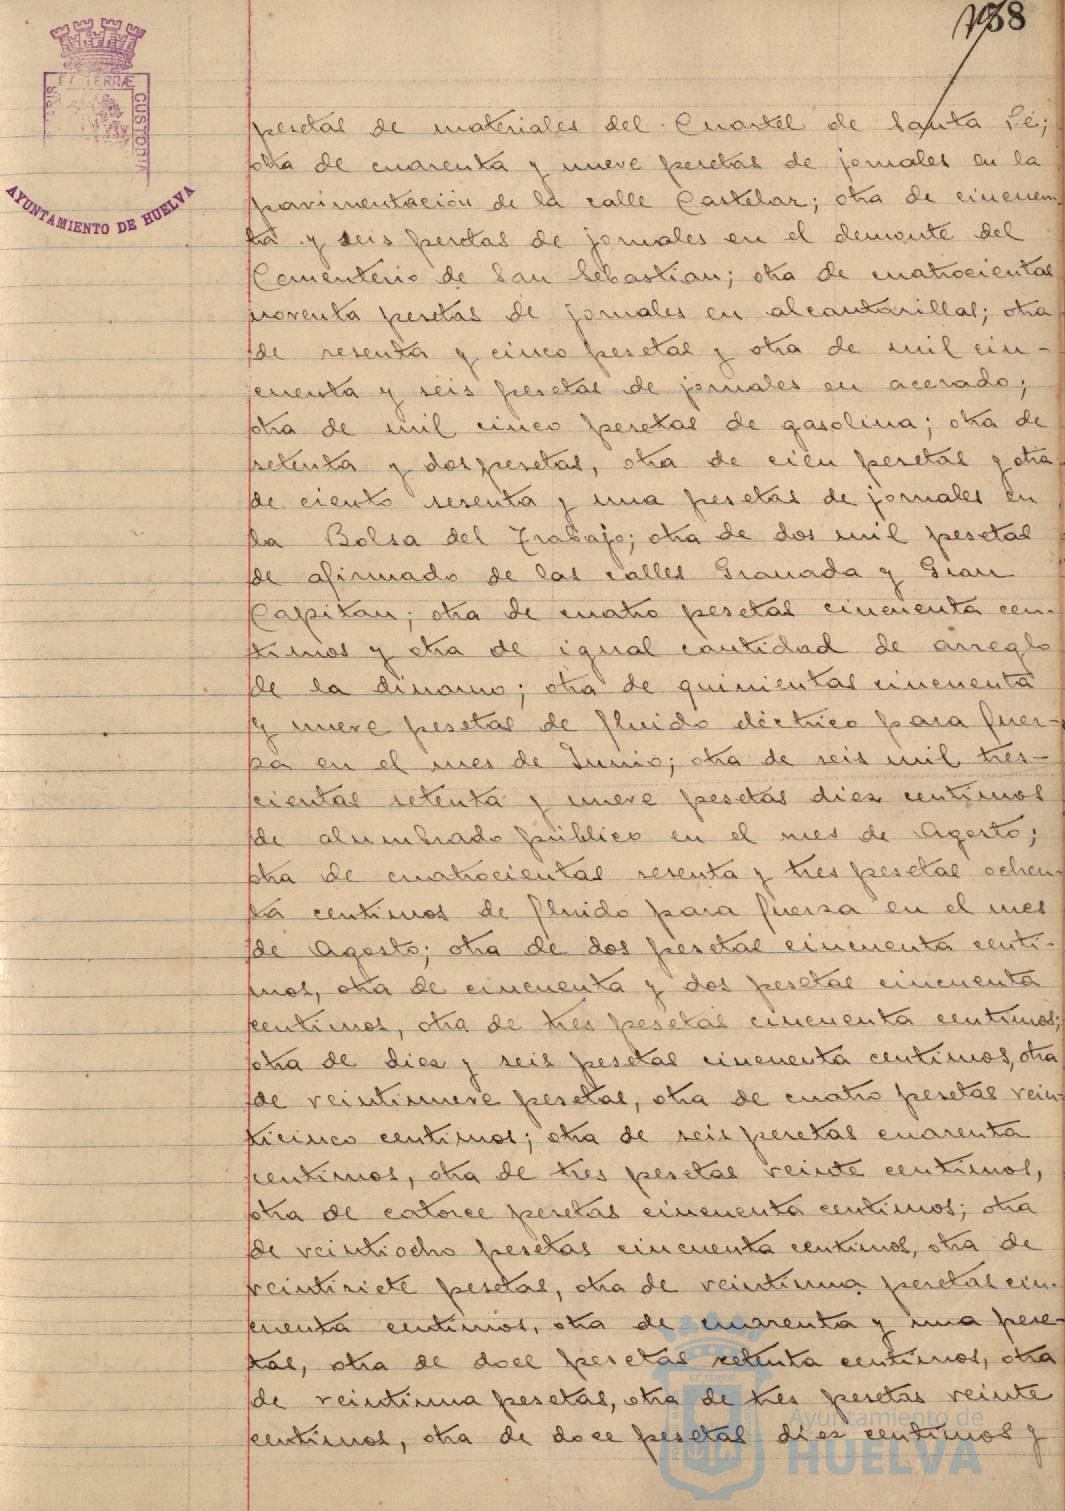 158
ET TERRÆ
CUSTODIA
AYUNTAMIENTO DE HUELVA
pesetas de materiales del Cuartel de Santa Fé;
otra de cuarenta y nueve pesetas de jornales en la
pavimentación de la calle Castelar; otra de cincuen-
ta y seis pesetas de jornales en el demonte del
Cementerio de San Sebastian; otra de cuatrocientas
noventa pesetas de jornales en alcantarillas; otra
de sesenta y cinco pesetas y otra de mil cin-
cuenta y seis pesetas de jornales en acerado;
otra de mil cinco pesetas de gasolina; otra de
setenta y dos pesetas, otra de cien pesetas y otra
de ciento sesenta y una pesetas de jornales en
la Bolsa del Trabajo; otra de dos mil pesetas
de afirmado de las calles Granada y Gran
Capitan; otra de cuatro pesetas cincuenta cen-
timos y otra de igual cantidad de arreglo
de la dinamo; otra de quinientas cincuenta
y nueve pesetas de fluido eléctrico para fuer-
za en el mes de Junio; otra de seis mil tres-
cientas setenta y nueve pesetas diez centimos
de alumbrado público en el mes de Agosto;
otra de cuatrocientas sesenta y tres pesetas ochen-
ta centimos de fluido para fuerza en el mes
de Agosto; otra de dos pesetas cincuenta centi-
mos, otra de cincuenta y dos pesetas cincuenta
centimos, otra de tres pesetas cincuenta centimos;
otra de diez y seis pesetas cincuenta centimos, otra
de veintinueve pesetas, otra de cuatro pesetas vein-
ticinco centimos; otra de seis pesetas cuarenta
centimos, otra de tres pesetas veinte centimos,
otra de catorce pesetas cincuenta centimos; otra
de veintiocho pesetas cincuenta centimos, otra de
veintisiete pesetas, otra de veintiuna pesetas cin-
cuenta centimos, otra de cuarenta y una pese-
tas, otra de doce pesetas setenta centimos, otra
de veintiuna pesetas, otra de tres pesetas veinte
centimos, otra de doce pesetas diez centimos y
Ayuntamiento de
HUELVA